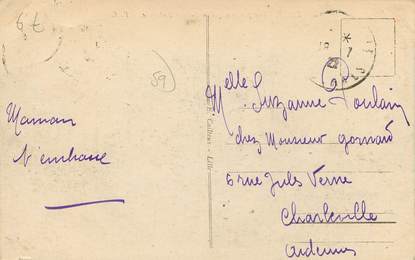 59
Maman
t'embrasse
Melle Suzanne Poulain
chez Monsieur
6 rue Jules Verne
Charleville
Ardennes
Lille